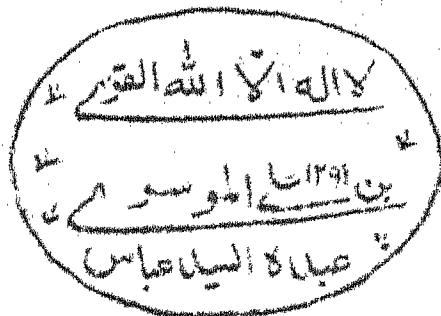 لا اله الا الله القوي
بن ١٢٩١ الموسوي
عبده السيد عباس